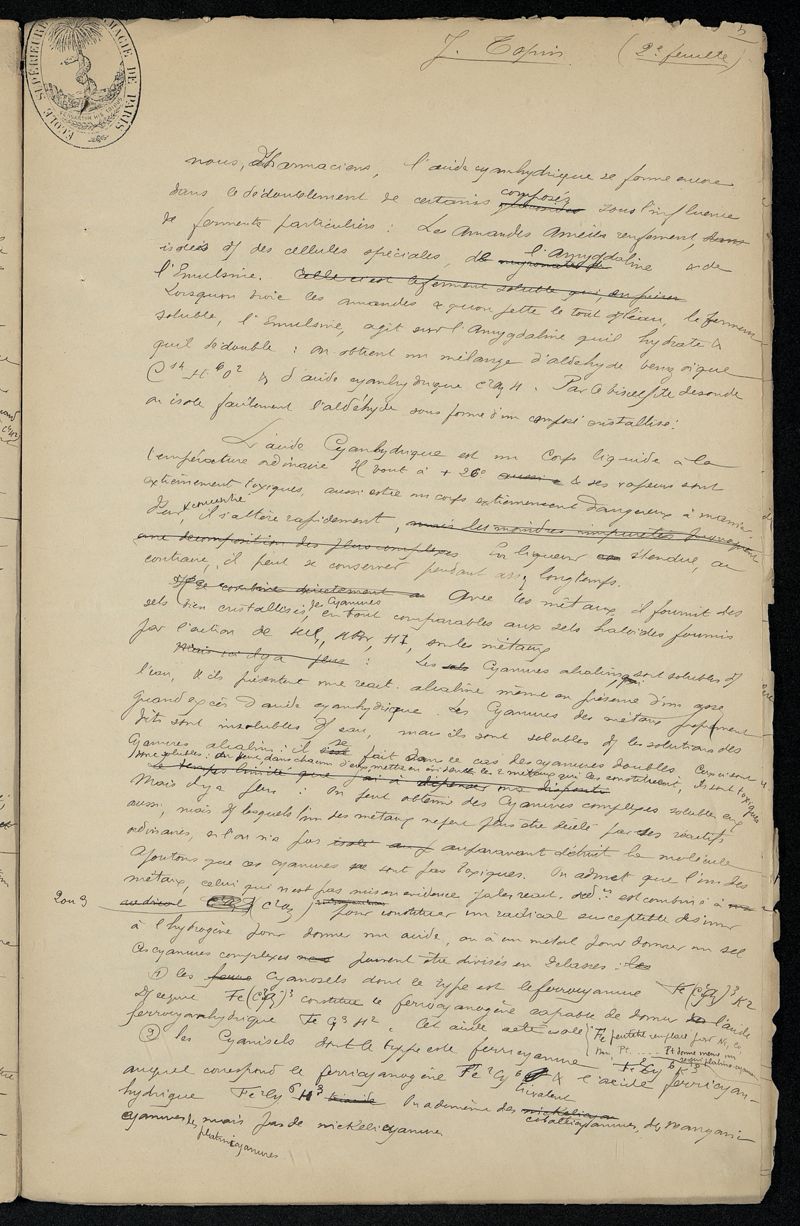 5
J. Topin (2e feuille)
ÉCOLE SUPÉRIEURE DE PHARMACIE DE PARIS
nous, Pharmaciens, l'acide cyanhydrique se forme encore
dans le dédoublement de certains composés sous l'influence
de ferments particuliers : Les Amandes Amères renferment,
isolés ds des cellules spéciales, de l'Amygdaline & de
l'Emulsine. Celle ci est le ferment soluble qui,
Lorsqu'on broie les amandes & qu'on jette le tout ds l'eau, le ferment
soluble, l'Emulsine, agit sur l'Amygdaline qu'il hydrate &
qu'il dédouble : on obtient un mélange d'aldéhyde benzoïque
C14 H6 O2 & d'acide cyanhydrique C2Az H. Par le bisulfite de soude
on isole facilement l'aldéhyde sous forme d'un composé cristallisé.
L'acide Cyanhydrique est un corps liquide à la
température ordinaire Il bout à + 26° & ses vapeurs sont
extrêmement toxiques, aussi est ce un corps extrêmement dangereux à manier.
Pur & concentré il s'altère rapidement, mais les moindres impuretés provoquent
une décomposition des plus complexes En liqueur étendue, au
contraire, il peut se conserver pendant assez longtemps.
Il se combine directement a Avec les métaux il fournit des
sels bien cristallisés, des Cyanures en tout comparables aux sels haloïdes fournis
par l'action de HCl, HBr, HI, sur les métaux
Mais il y a plus : Les Cyanures alcalins sont solubles ds
l'eau, & ils présentent une react. alcaline même en présence d'un assez
grand excès d'acide cyanhydrique. Les Cyanures des métaux proprement
dits sont insolubles ds l'eau, mais ils sont solubles ds les solutions des
Cyanures alcalins : il se fait dans ce cas des cyanures doubles,
on peut, dans chacun d'eux, mettre en évidence les 2 métaux qui les constituent, ils sont toxiques
Mais il y a plus : On peut obtenir des Cyanures complexes solubles eux
aussi, mais ds lesquels l'un des métaux ne peut plus être décelé par les réactifs
ordinaires, si l'on n'a pas auparavant détruit la molécule
Ajoutons que ces cyanures ne sont pas toxiques. On admet que l'un des
métaux, celui qui n'est pas mis en evidence par les react. est combiné à
2 ou 3 C2Az pour constituer un radical susceptible de s'unir
à l'hydrogène pour donner un acide, ou à un metal pour donner un sel
Ces cyanures complexes peuvent être divisés en 2 classes :
① les cyanosels dont le type est le ferrocyanure Fe(C2Az)3 K2
Ds lequel Fe(C2Az)3 constitue le ferrocyanogène capable de donner l'acide
ferrocyanhydrique Fe Cy3 H2. Cet acide a été isolé
Fe peut être remplacé par Ni, Co
Mn, Pt ...
② les Cyanisels dont le type est le ferricyanure Fe2 Cy6 K3
auquel correspond le ferricyanogène Fe2 Cy6 trivalent & l'acide ferricyan-
hydrique Fe2Cy6 H3 On a de même des cobalticyanures, des mangani-
cyanures des platinicyanures mais pas de nickelicyanures